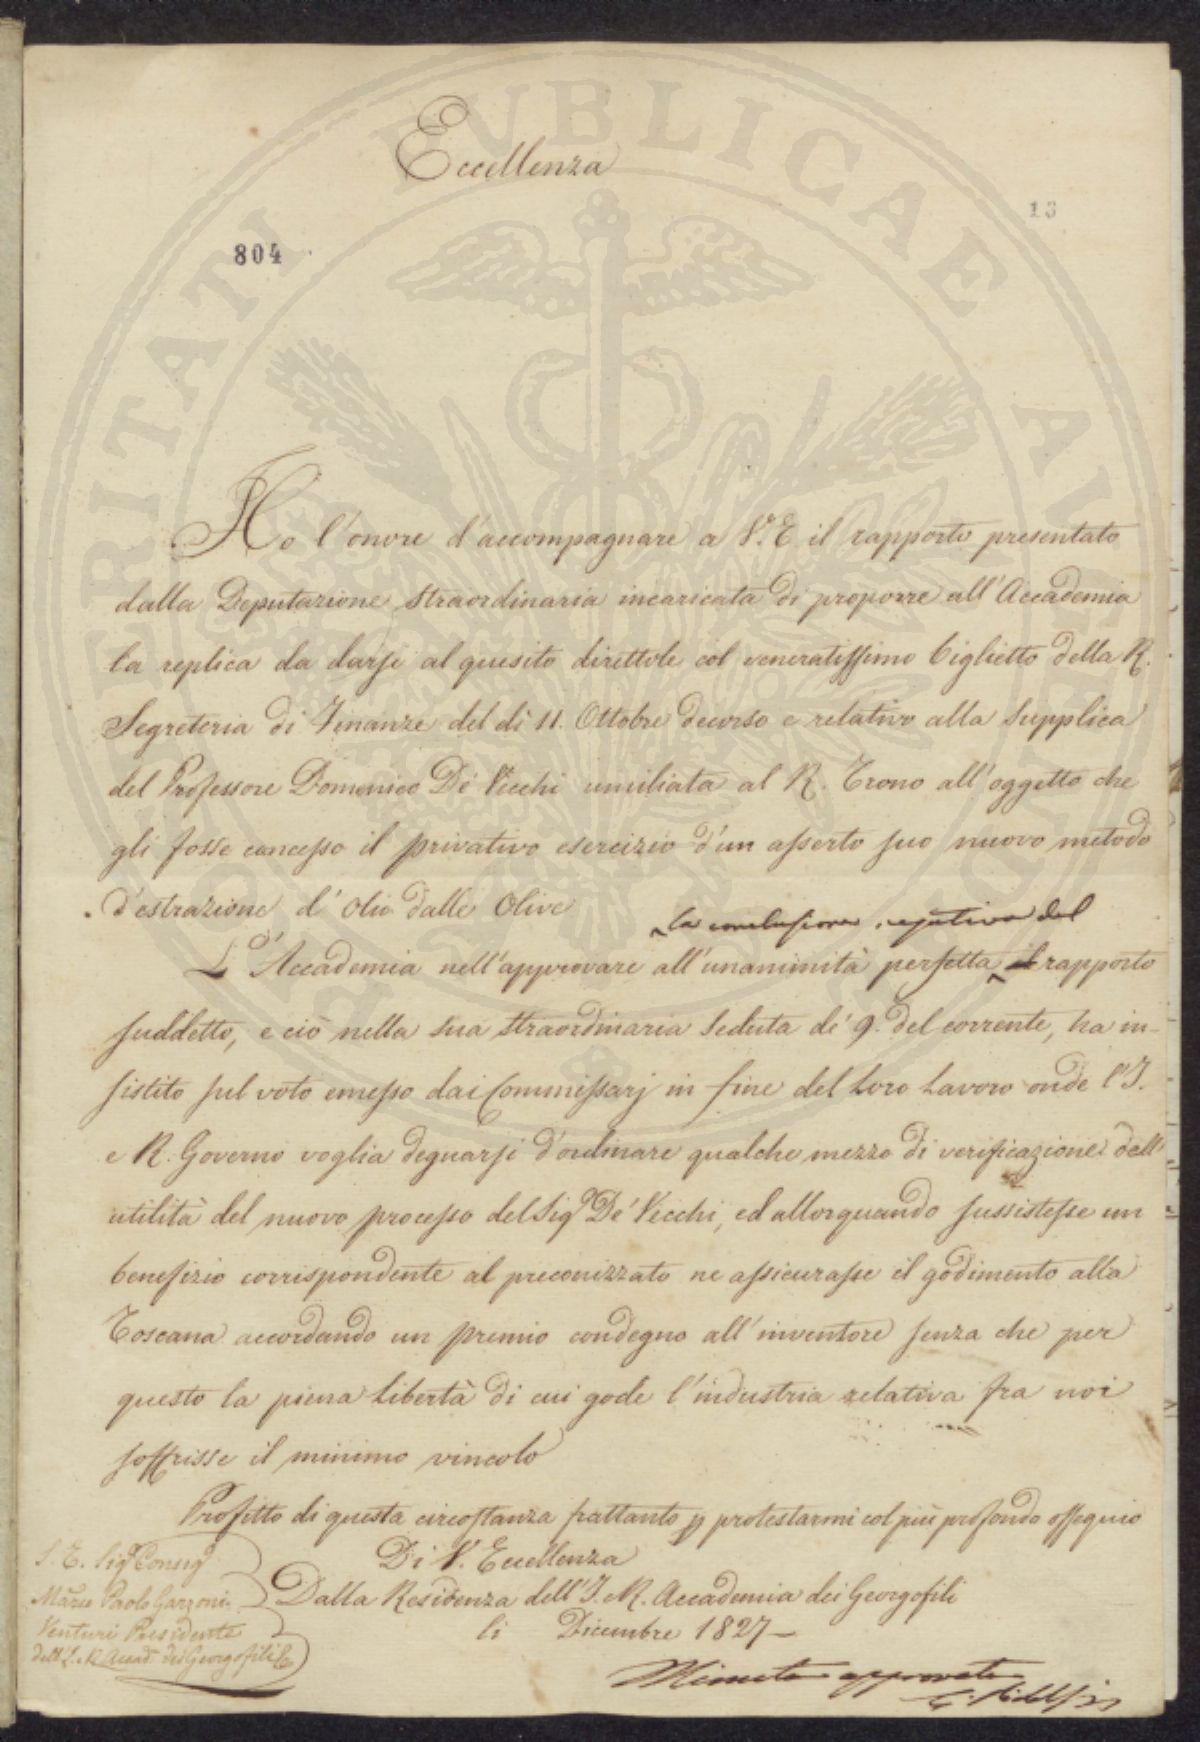 Eccellenza
13
804
Ho l'onore d'accompagnare a V. E. il rapporto presentato
dalla Deputazione straordinaria incaricata di proporre all'Accademia
la replica da darsi al quesito direttole col veneratissimo biglietto della R.
Segreteria di Finanze del dì 11. Ottobre decorso e relativo alla supplica
del Professore Domenico De' Vecchi umiliata al R. Trono all'oggetto che
gli fosse concesso il privativo esercizio d'un asserto suo nuovo metodo
d'estrazione d'Olio dalle Olive
la conclusione negativa del
L'Accademia nell'approvare all'unanimità perfetta il rapporto
suddetto, e ciò nella sua straordinaria Seduta de' 9. del corrente, ha in-
sistito sul voto emesso dai Commissarj in fine del Loro Lavoro onde l'I.
e R. Governo voglia degnarsi d'ordinare qualche mezzo di verificazione dell'
utilità del nuovo processo del Sig.r De' Vecchi, ed allorquando sussistesse un
benefizio corrispondente al preconizzato ne assicurasse il godimento alla
Toscana accordando un premio condegno all'inventore senza che per
questo la piena Libertà di cui gode l'industria relativa fra noi
soffrisse il minimo vincolo
Profitto di questa circostanza frattanto p protestarmi col più profondo ossequio
Di V. Eccellenza
Dalla Residenza dell'I. e R. Accademia dei Georgofili
li Dicembre 1827 –
S. E. Sig.r Consig.r
March. Paolo Garzoni
Venturi Presidente
dell'I. e R. Accad. dei Georgofili
Minuta approvata
C. Ridolfi
PUBLICAE